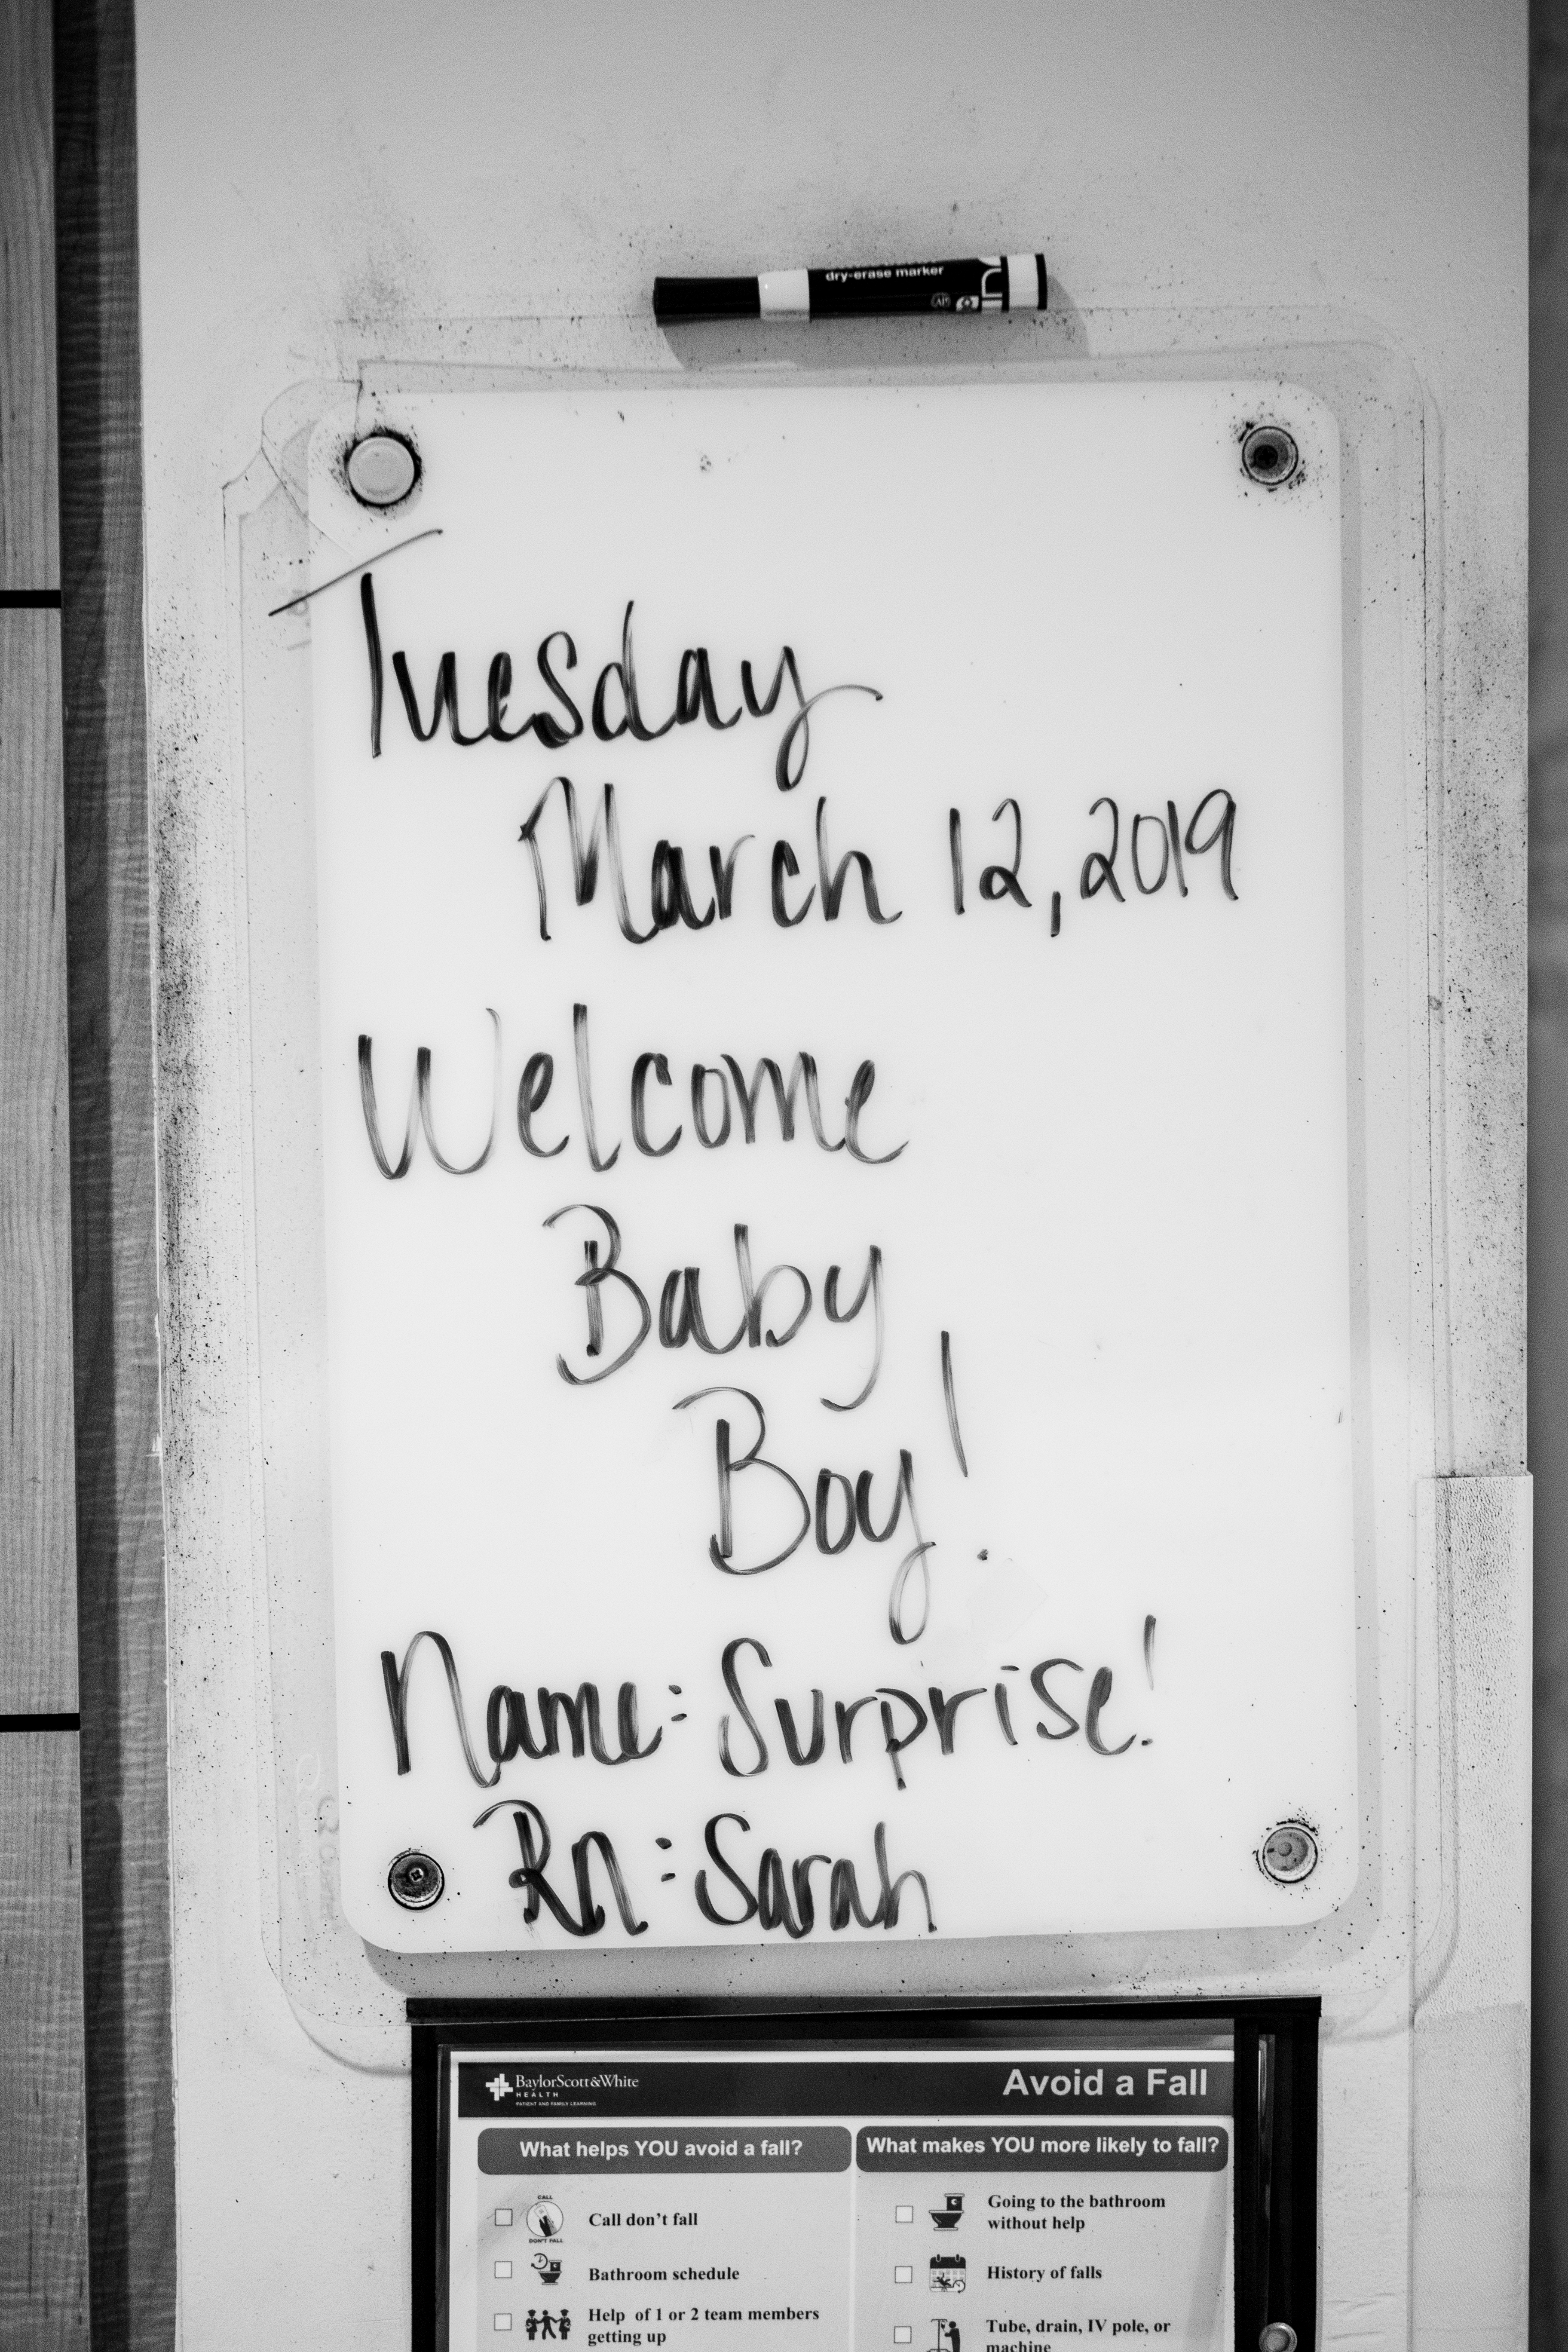 dry-erase marker
Tuesday
March 12, 2019
Welcome
Baby
Boy!
Name: Surprise!
Rn: Sarah
BaylorScott&White
HEALTH
PATIENT AND FAMILY LEARNING
Avoid a Fall
What helps YOU avoid a fall?
What makes YOU more likely to fall?
CALL
DON'T FALL
Call don't fall
Going to the bathroom
without help
Bathroom schedule
History of falls
Help of 1 or 2 team members
getting up
Tube, drain, IV pole, or
machine